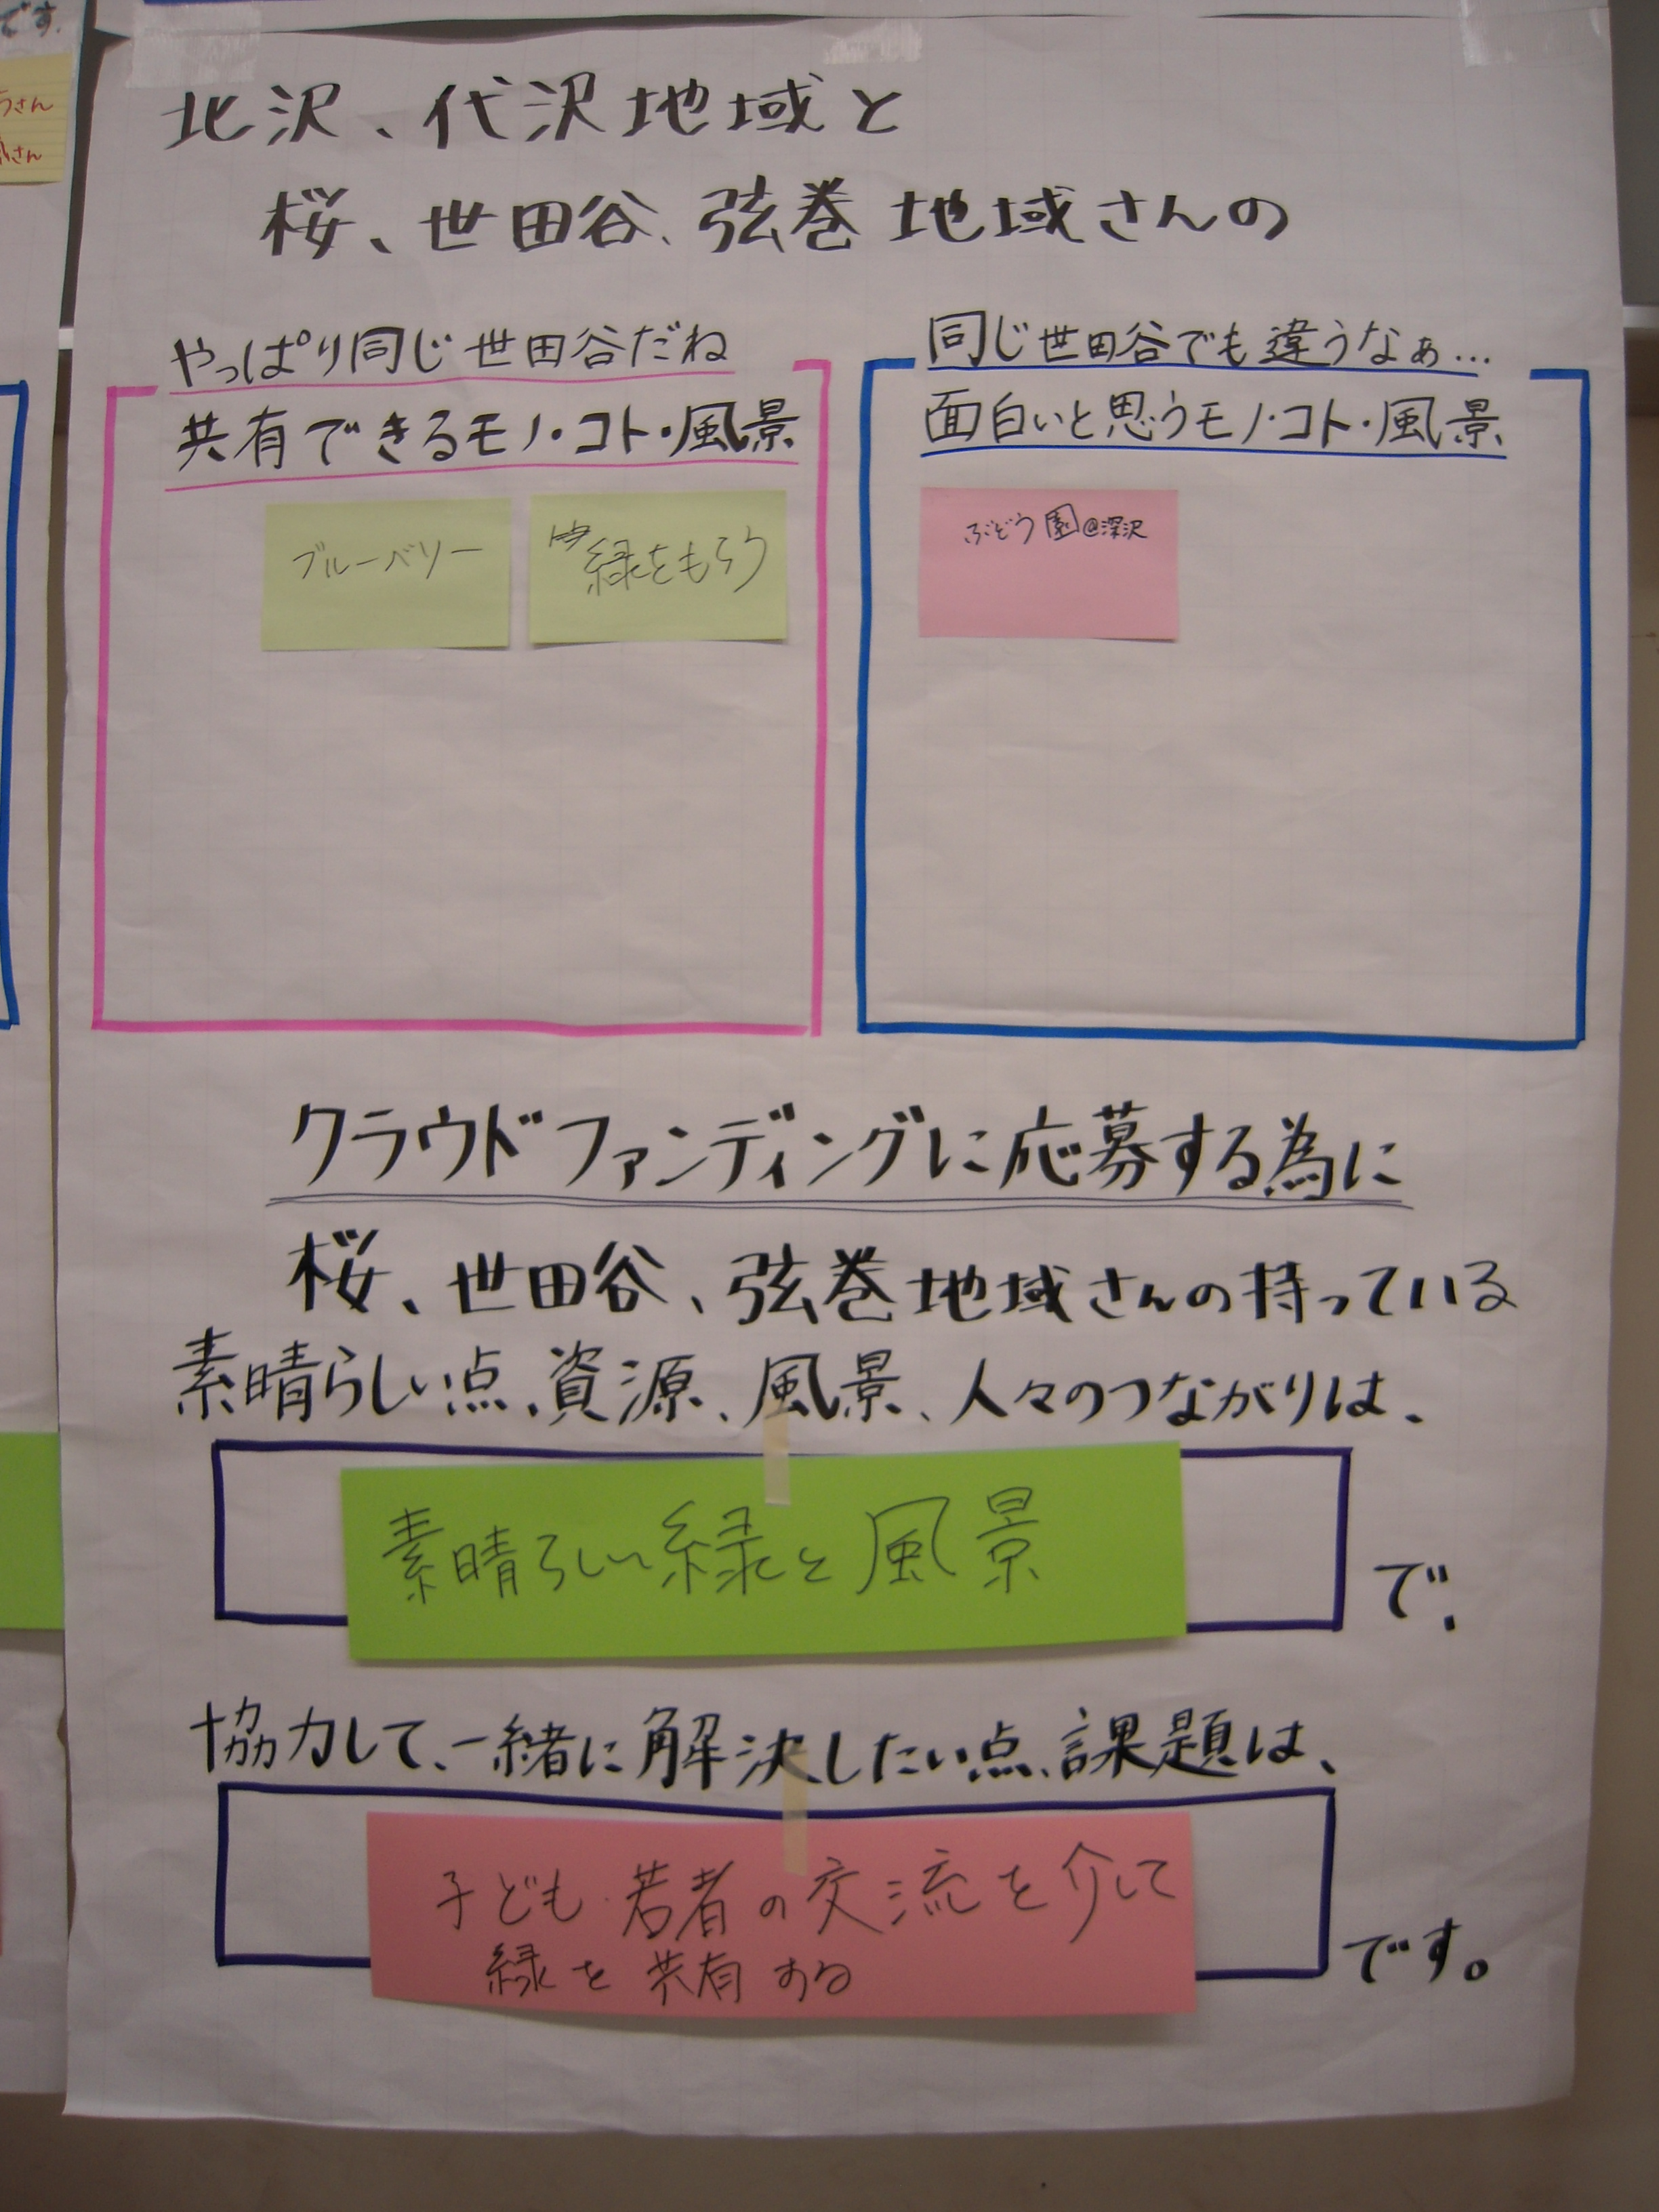 です。
さん
さん
北沢、代沢地域と
桜、世田谷、弦巻地域さんの
やっぱり同じ世田谷だね
共有できるモノ・コト・風景
ブルーベリー
緑をもらう
同じ世田谷でも違うなぁ…
面白いと思うモノ・コト・風景
ぶどう園@深沢
クラウドファンディングに応募する為に
桜、世田谷、弦巻地域さんの持っている
素晴らしい点、資源、風景、人々のつながりは、
素晴らしい緑と風景
で、
協力して、一緒に解決したい点、課題は、
子ども・若者の交流を介して
緑を共有する
です。